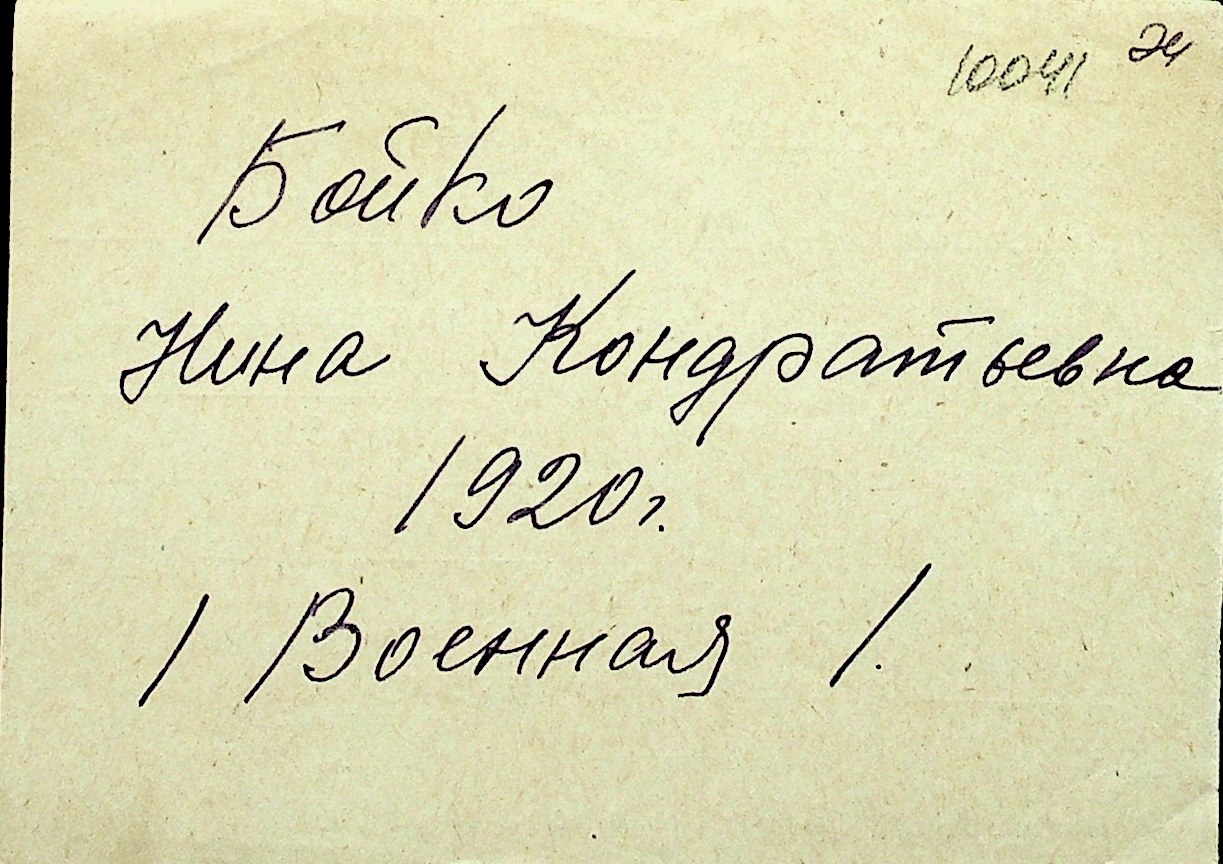 10041
Бойко
Нина Кондратьевна
1920г.
/ Военная /.